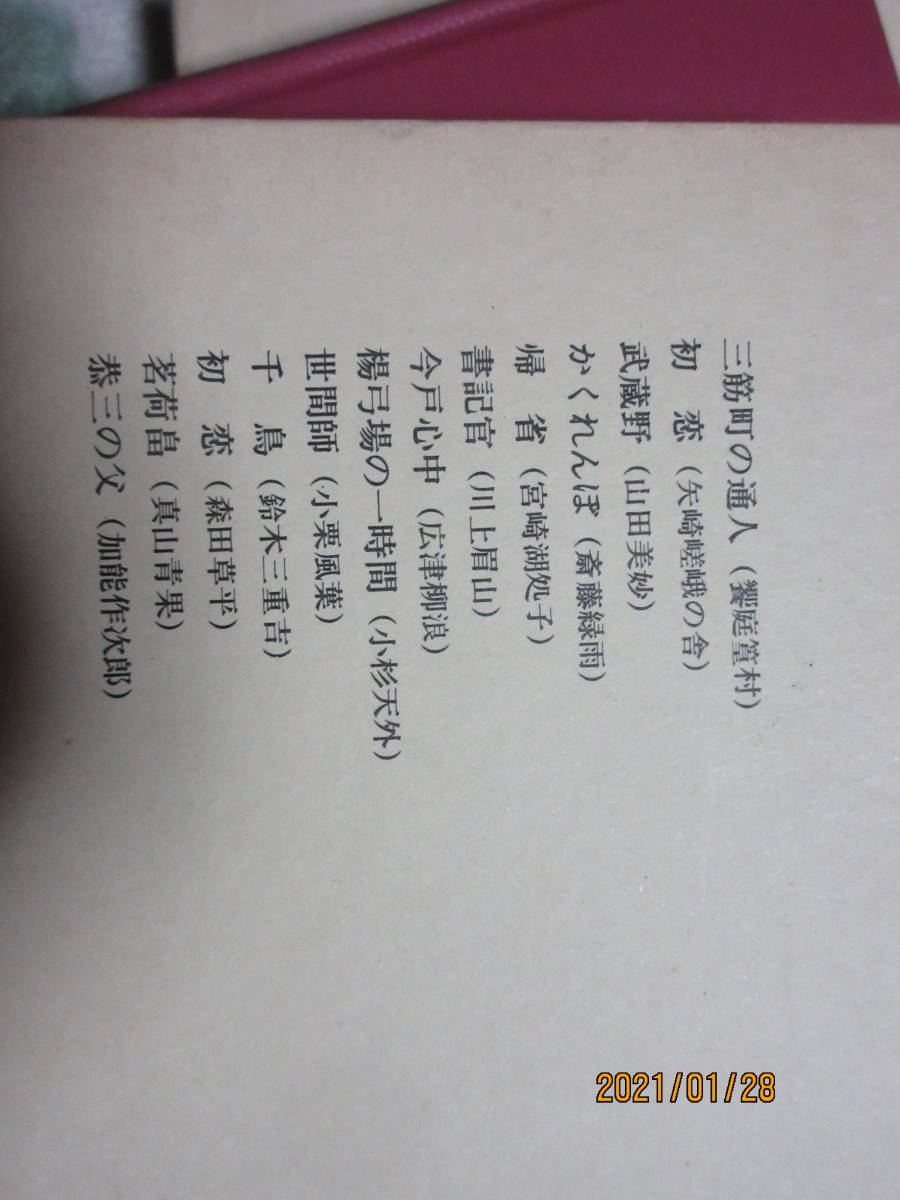 三筋町の通人（饗庭篁村）
初恋（矢崎嵯峨の舎）
武蔵野（山田美妙）
かくれんぼ（斎藤緑雨）
帰省（宮崎湖処子）
書記官（川上眉山）
今戸心中（広津柳浪）
楊弓場の一時間（小杉天外）
世間師（小栗風葉）
千鳥（鈴木三重吉）
初恋（森田草平）
茗荷畠（真山青果）
恭三の父（加能作次郎）
2021/01/28